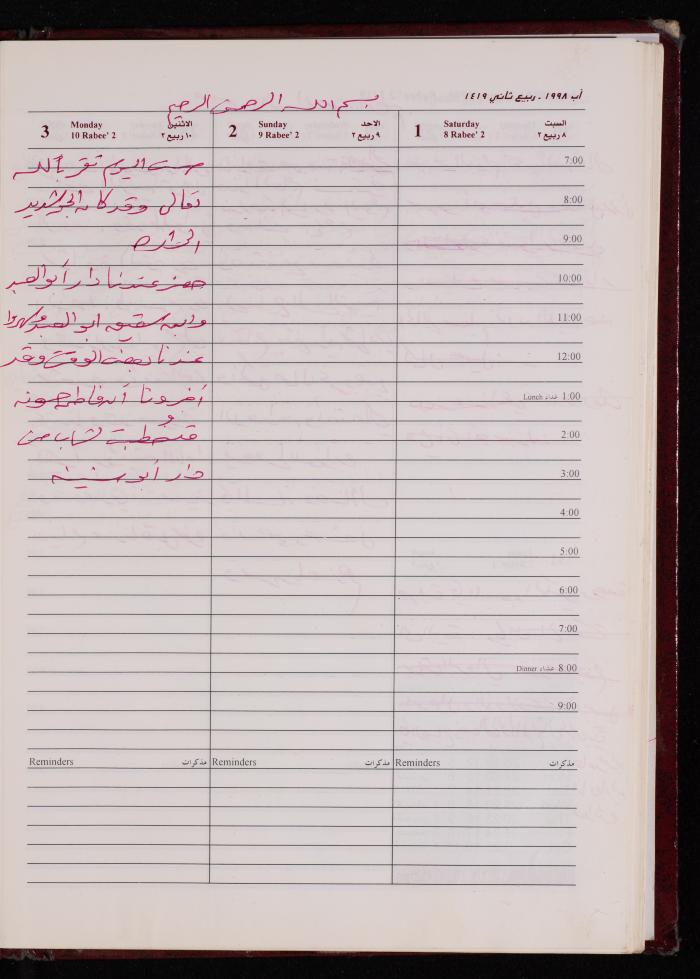 أب ١٩٩٨ . ربيع ثاني ١٤١٩
بسم الله الرحمن الرحيم
3 Monday الاثنين
10 Rabee' 2 ١٠ ربيع ٢
2 Sunday الاحد
9 Rabee' 2 ٩ ربيع ٢
1 Saturday السبت
8 Rabee' 2 ٨ ربيع ٢
صمت اليوم تقرباً لله
تعالى وقد كان الجو شديد
الحرارة
حضر عندنا دار أبو العبد
وابن شقيق ابو العبد وسهروا
عندنا بعض الوقت وقد
أخبرونا أن فاطمة
قد خُطبت لشاب من
دار أبو سنينة
7:00
8:00
9:00
10:00
11:00
12:00
Lunch غداء 1:00
2:00
3:00
4:00
5:00
6:00
7:00
Dinner عشاء 8:00
9:00
Reminders مذكرات
Reminders مذكرات
Reminders مذكرات